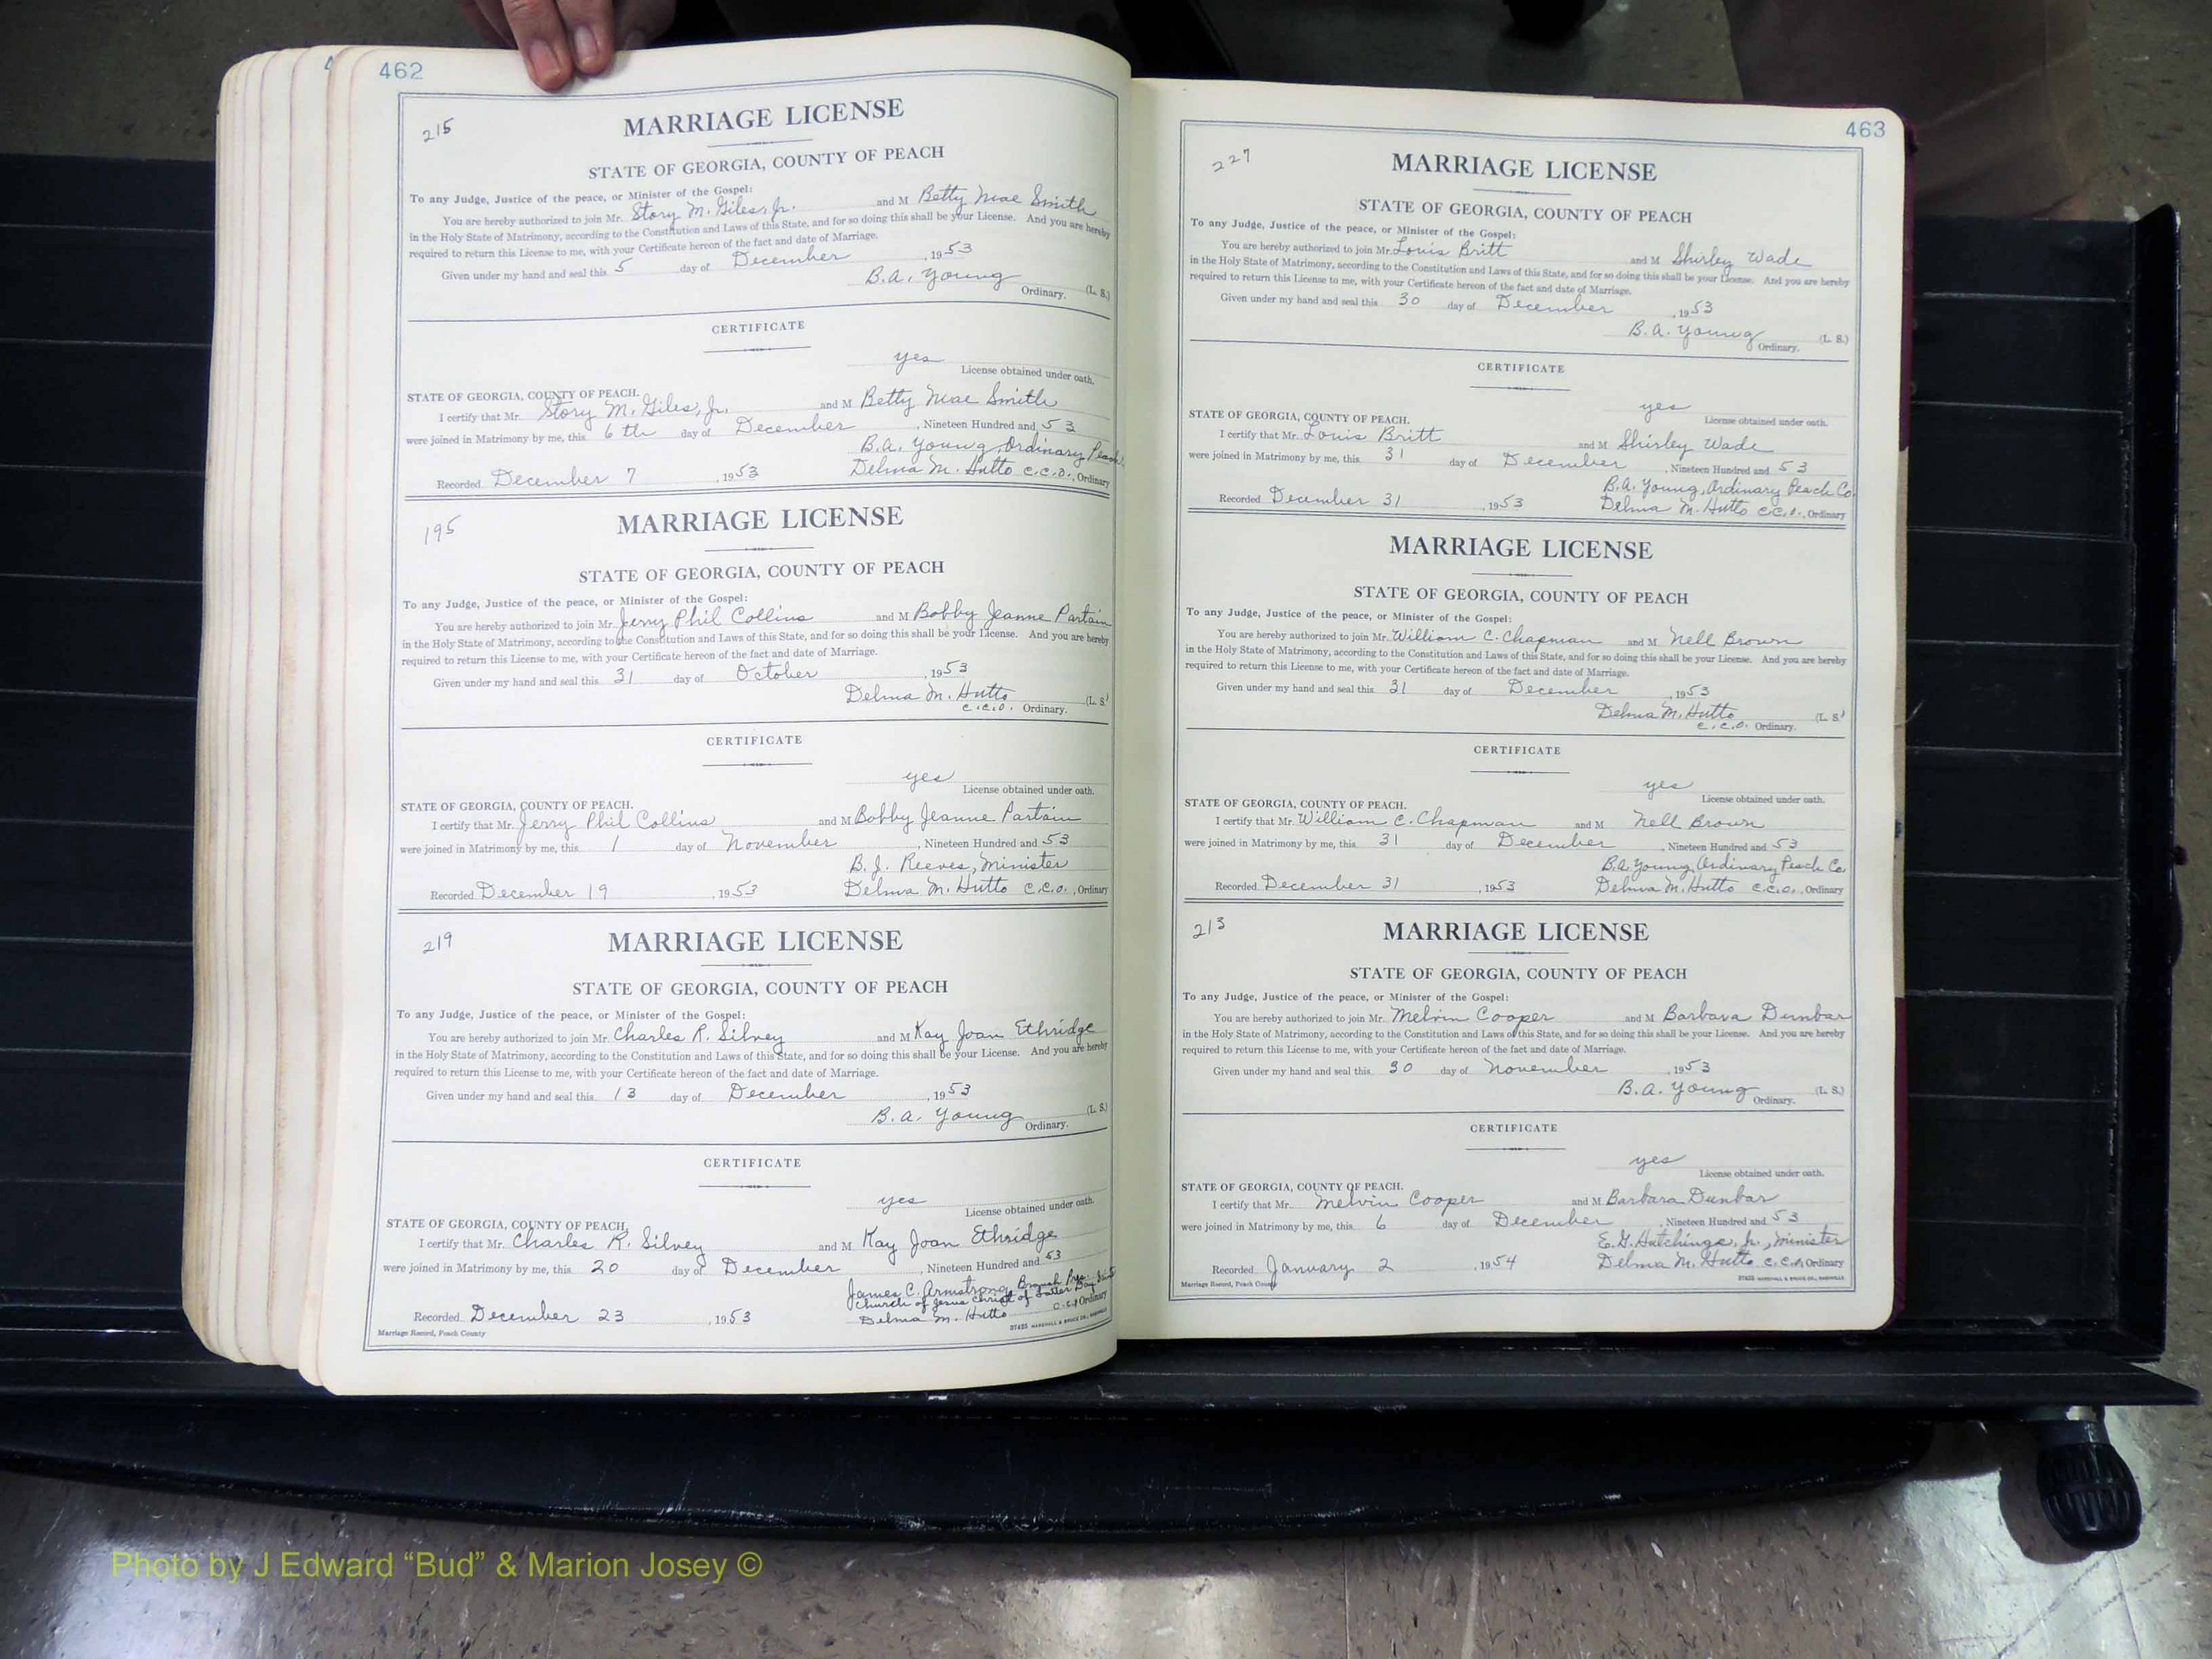 462
215
MARRIAGE LICENSE
STATE OF GEORGIA, COUNTY OF PEACH
To any Judge, Justice of the peace, or Minister of the Gospel:
You are hereby authorized to join Mr. Story M. Giles, Jr. and M Betty Mae Smith
in the Holy State of Matrimony, according to the Constitution and Laws of this State, and for so doing this shall be your License. And you are hereby
required to return this License to me, with your Certificate hereon of the fact and date of Marriage.
Given under my hand and seal this 5 day of December, 1953
B.A. Young (L. S.)
Ordinary.
CERTIFICATE
yes
License obtained under oath.
STATE OF GEORGIA, COUNTY OF PEACH.
I certify that Mr. Story M. Giles, Jr. and M Betty Mae Smith
were joined in Matrimony by me, this 6th day of December, Nineteen Hundred and 53
B.A. Young, Ordinary Peach
Recorded December 7, 1953 Delma M. Hutto C.C.O., Ordinary
195
MARRIAGE LICENSE
STATE OF GEORGIA, COUNTY OF PEACH
To any Judge, Justice of the peace, or Minister of the Gospel:
You are hereby authorized to join Mr. Jerry Phil Collins and M Bobby Jeanne Partain
in the Holy State of Matrimony, according to the Constitution and Laws of this State, and for so doing this shall be your License. And you are hereby
required to return this License to me, with your Certificate hereon of the fact and date of Marriage.
Given under my hand and seal this 31 day of October, 1953
Delma M. Hutto (L. S.)
C.C.O. Ordinary.
CERTIFICATE
yes
License obtained under oath.
STATE OF GEORGIA, COUNTY OF PEACH.
I certify that Mr. Jerry Phil Collins and M Bobby Jeanne Partain
were joined in Matrimony by me, this 1 day of November, Nineteen Hundred and 53
B. J. Reeves, Minister
Recorded December 19, 1953 Delma M. Hutto C.C.O., Ordinary
219
MARRIAGE LICENSE
STATE OF GEORGIA, COUNTY OF PEACH
To any Judge, Justice of the peace, or Minister of the Gospel:
You are hereby authorized to join Mr. Charles R. Silvey and M Kay Joan Ethridge
in the Holy State of Matrimony, according to the Constitution and Laws of this State, and for so doing this shall be your License. And you are hereby
required to return this License to me, with your Certificate hereon of the fact and date of Marriage.
Given under my hand and seal this 13 day of December, 1953
B. A. Young (L. S.)
Ordinary.
CERTIFICATE
yes
License obtained under oath.
STATE OF GEORGIA, COUNTY OF PEACH.
I certify that Mr. Charles R. Silvey and M Kay Joan Ethridge
were joined in Matrimony by me, this 20 day of December, Nineteen Hundred and 53
James C. Armstrong, Branch Pres.
Church of Jesus Christ of Latter Day
Recorded December 23, 1953 Delma M. Hutto C.C.O. Ordinary
Marriage Record, Peach County
37425 MARSHALL & BRUCE CO., NASHVILLE
463
227
MARRIAGE LICENSE
STATE OF GEORGIA, COUNTY OF PEACH
To any Judge, Justice of the peace, or Minister of the Gospel:
You are hereby authorized to join Mr. Louis Britt and M Shirley Wade
in the Holy State of Matrimony, according to the Constitution and Laws of this State, and for so doing this shall be your License. And you are hereby
required to return this License to me, with your Certificate hereon of the fact and date of Marriage.
Given under my hand and seal this 30 day of December, 1953
B. A. Young (L. S.)
Ordinary.
CERTIFICATE
yes
License obtained under oath.
STATE OF GEORGIA, COUNTY OF PEACH.
I certify that Mr. Louis Britt and M Shirley Wade
were joined in Matrimony by me, this 31 day of December, Nineteen Hundred and 53
B.A. Young, Ordinary Peach Co.
Recorded December 31, 1953 Delma M. Hutto C.C.O., Ordinary
MARRIAGE LICENSE
STATE OF GEORGIA, COUNTY OF PEACH
To any Judge, Justice of the peace, or Minister of the Gospel:
You are hereby authorized to join Mr. William C. Chapman and M Nell Brown
in the Holy State of Matrimony, according to the Constitution and Laws of this State, and for so doing this shall be your License. And you are hereby
required to return this License to me, with your Certificate hereon of the fact and date of Marriage.
Given under my hand and seal this 31 day of December, 1953
Delma M. Hutto (L. S.)
C.C.O. Ordinary.
CERTIFICATE
yes
License obtained under oath.
STATE OF GEORGIA, COUNTY OF PEACH.
I certify that Mr. William C. Chapman and M Nell Brown
were joined in Matrimony by me, this 31 day of December, Nineteen Hundred and 53
B.A. Young, Ordinary Peach Co.
Recorded December 31, 1953 Delma M. Hutto C.C.O., Ordinary
213
MARRIAGE LICENSE
STATE OF GEORGIA, COUNTY OF PEACH
To any Judge, Justice of the peace, or Minister of the Gospel:
You are hereby authorized to join Mr. Melvin Cooper and M Barbara Dunbar
in the Holy State of Matrimony, according to the Constitution and Laws of this State, and for so doing this shall be your License. And you are hereby
required to return this License to me, with your Certificate hereon of the fact and date of Marriage.
Given under my hand and seal this 30 day of November, 1953
B.A. Young (L. S.)
Ordinary.
CERTIFICATE
yes
License obtained under oath.
STATE OF GEORGIA, COUNTY OF PEACH.
I certify that Mr. Melvin Cooper and M Barbara Dunbar
were joined in Matrimony by me, this 6 day of December, Nineteen Hundred and 53
E. G. Hutchings, Jr., Minister
Recorded January 2, 1954 Delma M. Hutto C.C.O. Ordinary
Marriage Record, Peach County
37425 MARSHALL & BRUCE CO., NASHVILLE
Photo by J Edward “Bud” & Marion Josey ©